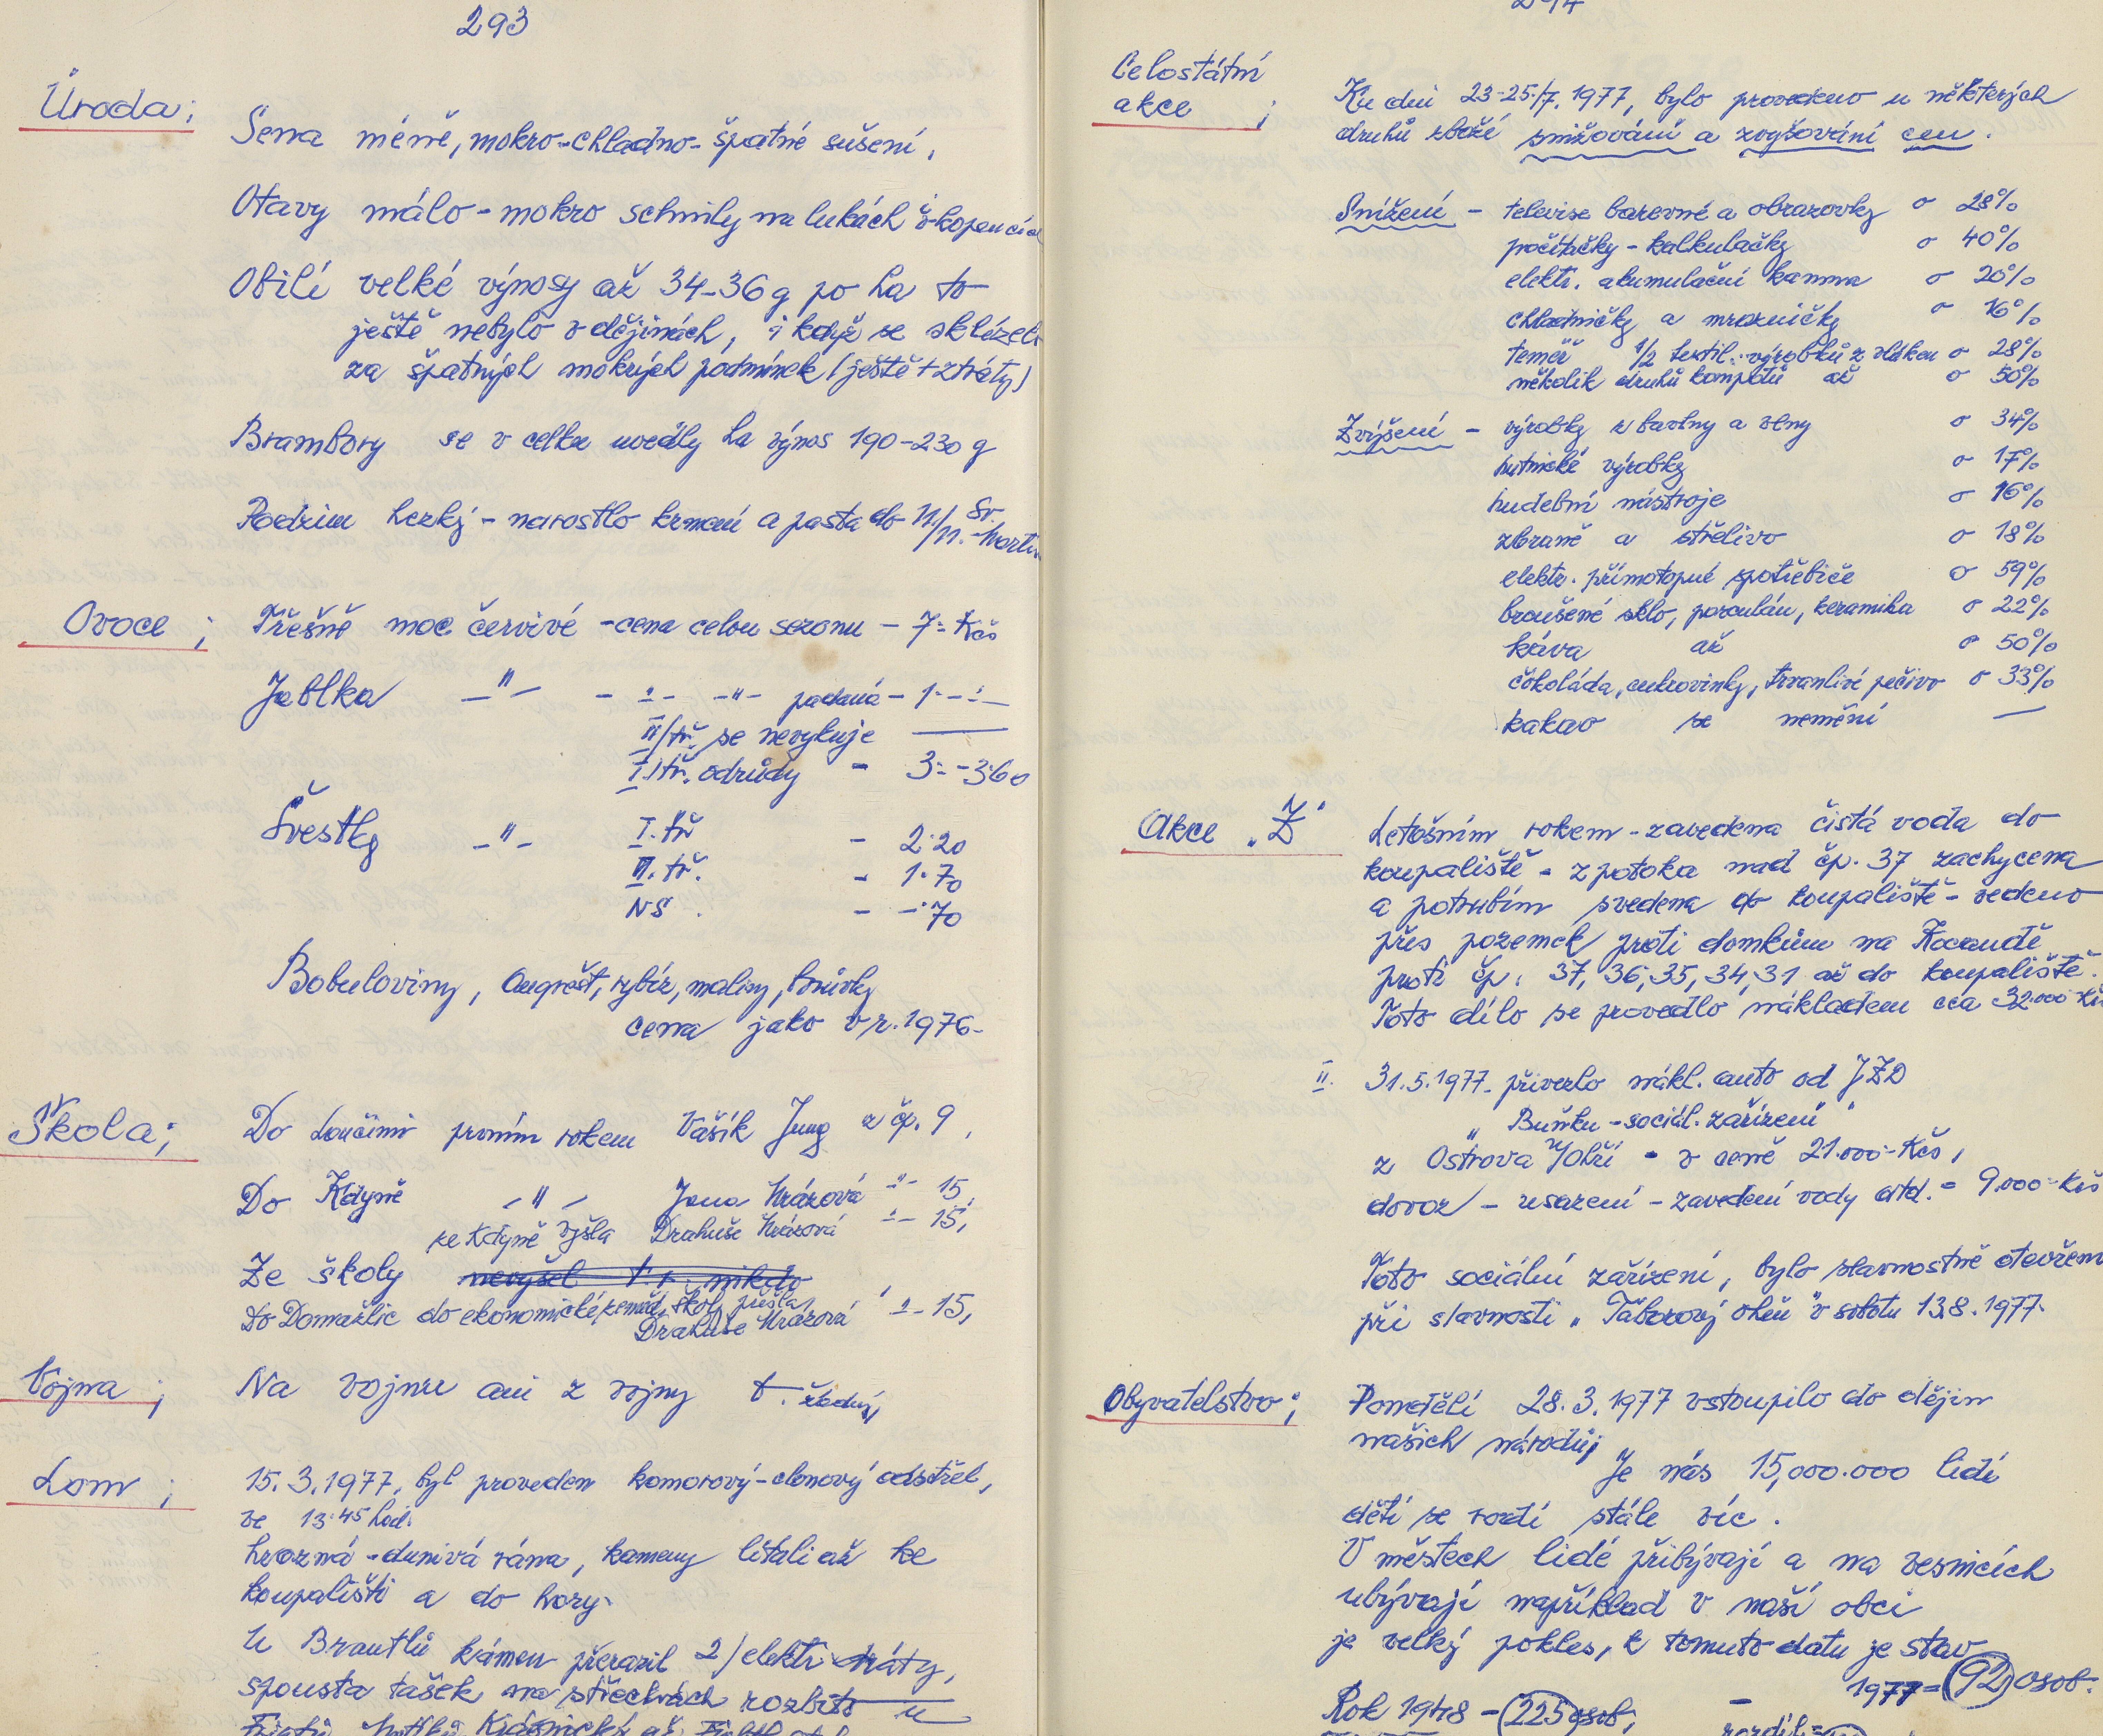 293
Úroda;
Sena méně, mokro-chladno-špatné sušení,
Otavy málo-mokro schnily na lukách i v kopencích
Obilí velké výnosy až 34-36 q po ha to
ještě nebylo v dějinách, i když se sklízeli
za špatných mokrých podmínek (ještě + ztráty)
Brambory se v celku uvedly ha výnos 190-230 q
Podzim hezký - narostlo krmení a pasta do 11./11. Sv. Marti
Ovoce;
Třešně moc červivé - cena celou sezonu - 7:- Kčs
Jablka -"- - -"- -"- padaná - 1.-:-
II/tř. se nevykuje
I/tř. odrůdy - 3:- -3:60
Švestky -"- I. tř - 2:20
II. tř. - 1:70
NS. - -:70
Boboloviny, Angrešt, rybíz, maliny, borůvky
cena jako v r. 1976-
Škola;
Do Loučimi prvním rokem Vašík Jung z čp. 9,
Do Kdyně -"- Jana Krázová -"- 15,
ze Kdyně vyšla Drahuše Krázová -"- 15,
Ze školy nevyšel t.r. nikdo,
Do Domažlic do ekonomické zeměd. školy přešla,
Drahuše Krázová -"- 15,
Vojna;
Na vojnu ani z vojny t. žádný,
Lom;
15.3.1977, byl proveden komorový-clonový odstřel,
ve 13:45 hod.
hrozná-dunivá rána, kameny lítali až ke
koupališti a do hory.
U Brautlů kámen přerazil 2/ elektr. dráty,
spousta tašek na střechách rozbito u
294
Celostátní
akce;
Ke dni 23-25./7. 1977, bylo provedeno u některých
druhů zboží snižování a zvyšování cen.
Snížení - televise barevné a obrazovky o 28%
počítačky - kalkulačky o 40%
elektr. akumulační kamna o 20%
chladničky a mrazničky o 16%
téměř 1/2 textil. výrobků z vláken o 28%
několik druhů kompotů až o 50%
Zvýšení - výrobky z bavlny a vlny o 34%
hutnické výrobky o 17%
hudební nástroje o 16%
zbraně a střelivo o 18%
elektr. přímotopné spotřebiče o 59%
broušené sklo, porculán, keramika o 22%
káva až o 50%
čokoláda, cukrovinky, trvanlivé pečivo o 33%
kakao se nemění —
Akce „Z"
Letošním rokem-zavedena čistá voda do
koupaliště - z potoka nad čp. 37 zachycena
a potrubím svedena do koupaliště - vedeno
přes pozemek proti domkům na Kocandě
proti čp. 37, 36, 35, 34, 31 až do koupaliště.
Toto dílo se provedlo nákladem cca 32.000 Kčs
II. 31.5.1977. přivezlo nákl. auto od JZD
„Buňku-sociál. zařízení"
z Ostrova N/Ohří - v ceně 21.000- Kčs,
dovoz - usazení - zavedení vody atd. = 9.000- Kčs
Toto sociální zářízení, bylo slavnostně otevřeno
při slavnosti „Táborový oheň" v sobotu 13.8.1977.
Obyvatelstvo;
Pondělí 28.3.1977 vstoupilo do dějin
našich národů;
Je nás 15,000.000 lidí
dětí se rodí stále víc.
V městech lidé přibývají a na vesnicích
ubývají například v naší obci
je velký pokles, k tomuto datu je stav
1977 = 92 osob.
Rok 1948 - 225 osob, -
rozdíl =